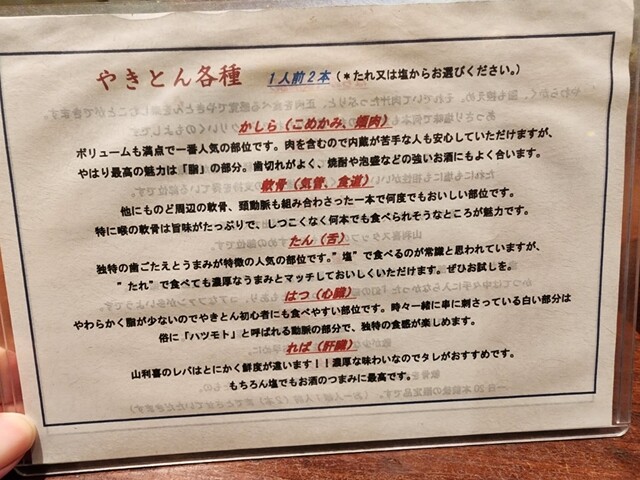 やきとん各種 1人前2本(*たれ又は塩からお選びください。)
かしら(こめかみ、頬肉)
ボリュームも満点で一番人気の部位です。肉を含むので内蔵が苦手な人も安心していただけますが、
やはり最高の魅力は「脂」の部分。歯切れがよく、焼酎や泡盛などの強いお酒にもよく合います。
軟骨(気管、食道)
他にものど周辺の軟骨、頸動脈も組み合わさった一本で何度でもおいしい部位です。
特に喉の軟骨は旨味がたっぷりで、しつこくなく何本でも食べられそうなところが魅力です。
たん(舌)
独特の歯ごたえとうまみが特徴の人気の部位です。"塩"で食べるのが常識と思われていますが、
"たれ"で食べても濃厚なうまみとマッチしておいしくいただけます。ぜひお試しを。
はつ(心臓)
やわらかく脂が少ないのでやきとん初心者にも食べやすい部位です。時々一緒に串に刺さっている白い部分は
俗に「ハツモト」と呼ばれる動脈の部分で、独特の食感が楽しめます。
れば(肝臓)
山利喜のレバはとにかく鮮度が違います!!濃厚な味わいなのでタレがおすすめです。
もちろん塩でもお酒のつまみに最高です。